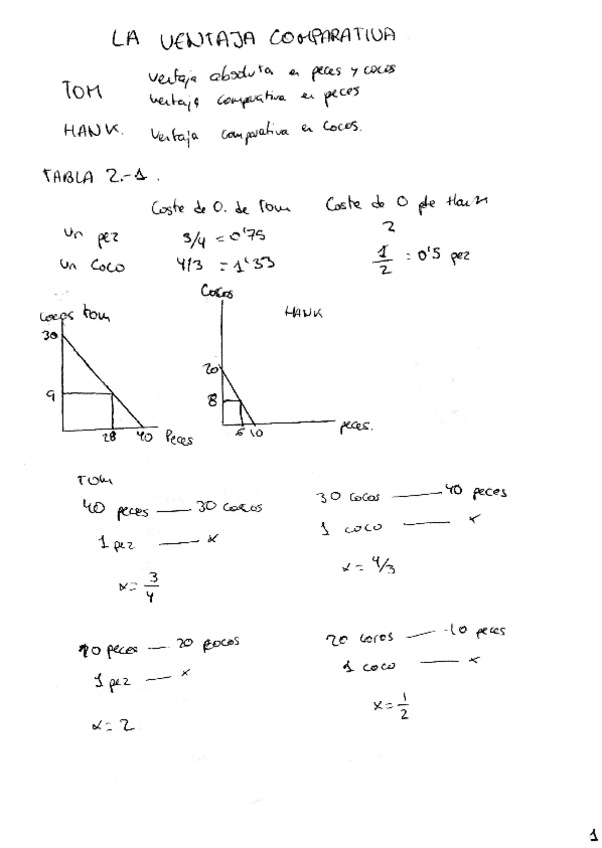 LA VENTAJA COMPARATIVA
TOM
Ventaja absoluta en peces y cocos
Ventaja comparativa en peces
HANK. Ventaja comparativa en Cocos.
TABLA 2.-1.
Coste de O. de Tom Coste de O de Hank
un pez 3/4 = 0'75 2
un coco 4/3 = 1'33 1/2 : 0'5 pez
Cocos Tom
30
9
28 40 Peces
Cocos
HANK
20
8
6 10 peces.
TOM
40 peces — 30 cocos
1 pez — x
x = 3/4
30 cocos — 40 peces
1 coco — x
x = 4/3
10 peces — 20 cocos
1 pez — x
x = 2
20 cocos — 10 peces
1 coco — x
x = 1/2
1